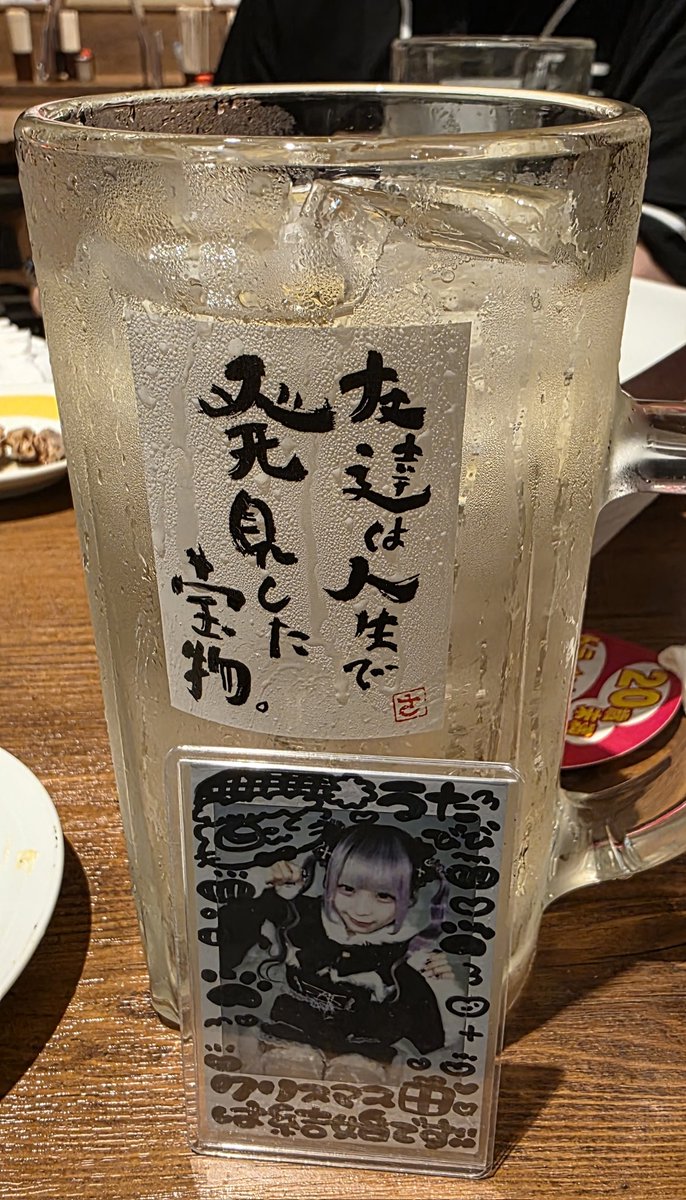 友達は人生で
発見した
宝物。
うた
クリスマス曲
は結婚です!!
20歳未満